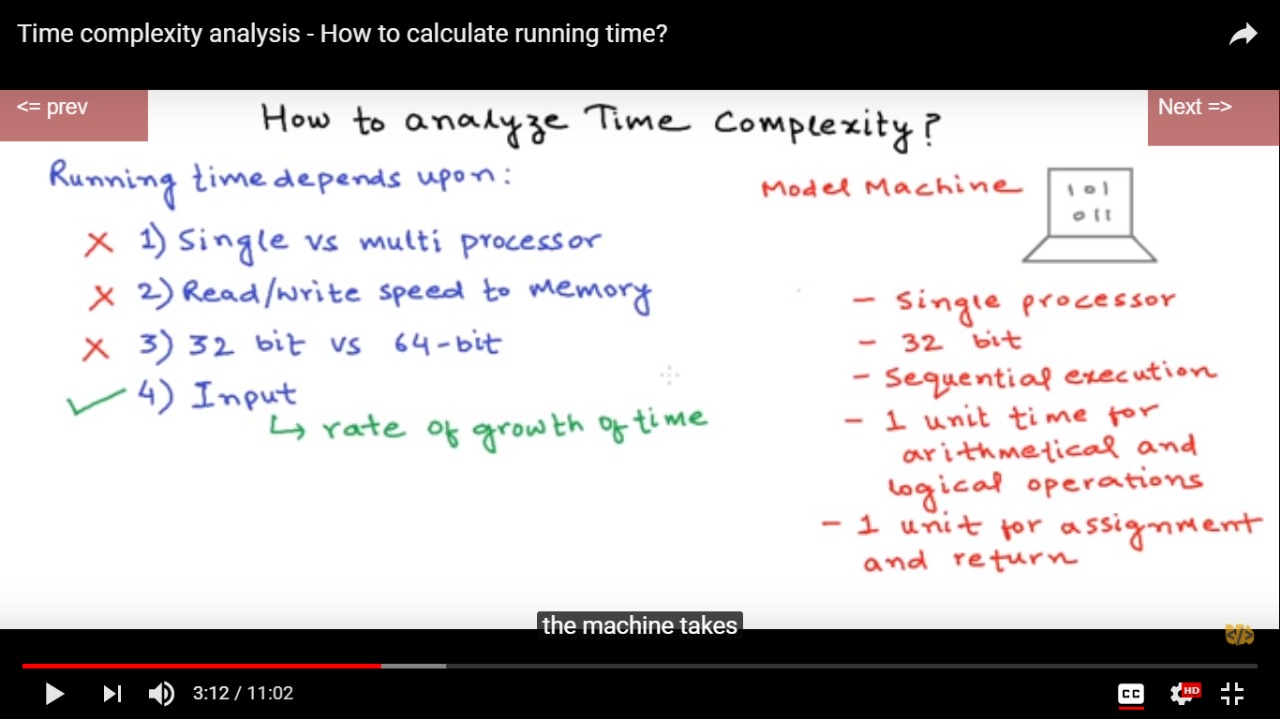 Time complexity analysis - How to calculate running time?
<= prev
Next =>
How to analyze Time Complexity?
Running time depends upon:
✗ 1) Single vs multi processor
✗ 2) Read/write speed to memory
✗ 3) 32 bit vs 64-bit
✓ 4) Input
↳ rate of growth of time
Model Machine
101
011
- Single processor
- 32 bit
- Sequential execution
- 1 unit time for
arithmetical and
logical operations
- 1 unit for assignment
and return
the machine takes
</>
3:12 / 11:02
CC
HD